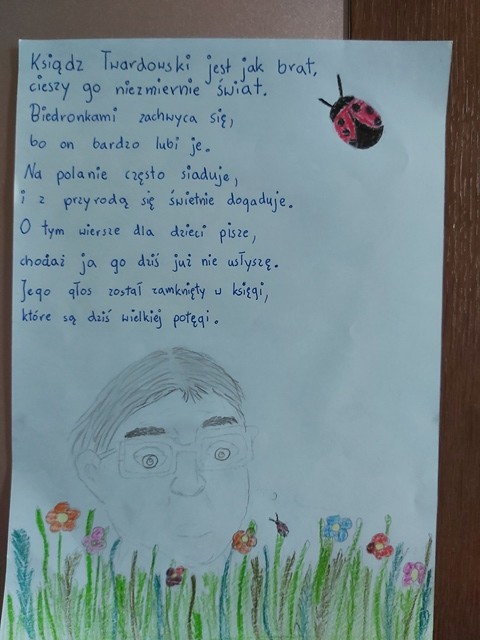 Ksiądz Twardowski jest jak brat,
cieszy go niezmiernie świat.
Biedronkami zachwyca się,
bo on bardzo lubi je.
Na polanie często siaduje,
i z przyrodą się świetnie dogaduje.
O tym wiersze dla dzieci pisze,
chodaż ja go dziś już nie usłyszę.
Jego głos został zamknięty w księgi,
które są dziś wielkiej potęgi.